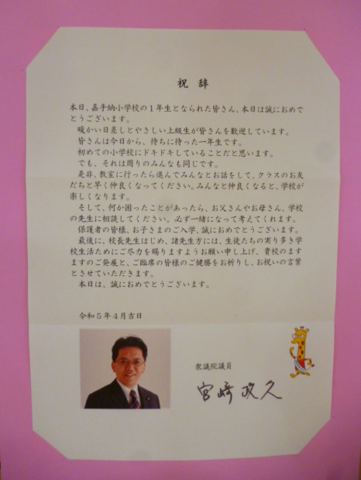 祝 辞
本日、嘉手納小学校の１年生となられた皆さん、本日は誠におめで
とうございます。
暖かい日差しとやさしい上級生が皆さんを歓迎しています。
皆さんは今日から、待ちに待った一年生です。
初めての小学校にドキドキしていることだと思います。
でも、それは周りのみんなも同じです。
是非、教室に行ったら進んでみんなとお話をして、クラスのお友
だちと早く仲良くなってください。みんなと仲良くなると、学校が
楽しくなります。
そして、何か困ったことがあったら、お父さんやお母さん、学校
の先生に相談してください。必ず一緒になって考えてくれます。
保護者の皆様、お子さまのご入学、誠におめでとうございます。
最後に、校長先生はじめ、諸先生方には、生徒たちの実り多き学
校生活のためにご尽力を賜りますようお願い申し上げ、貴校のます
ますのご発展と、ご臨席の皆様のご健勝をお祈りし、お祝いの言葉
とさせていただきます。
本日は、誠におめでとうございます。
令和５年４月吉日
衆議院議員
宮﨑政久